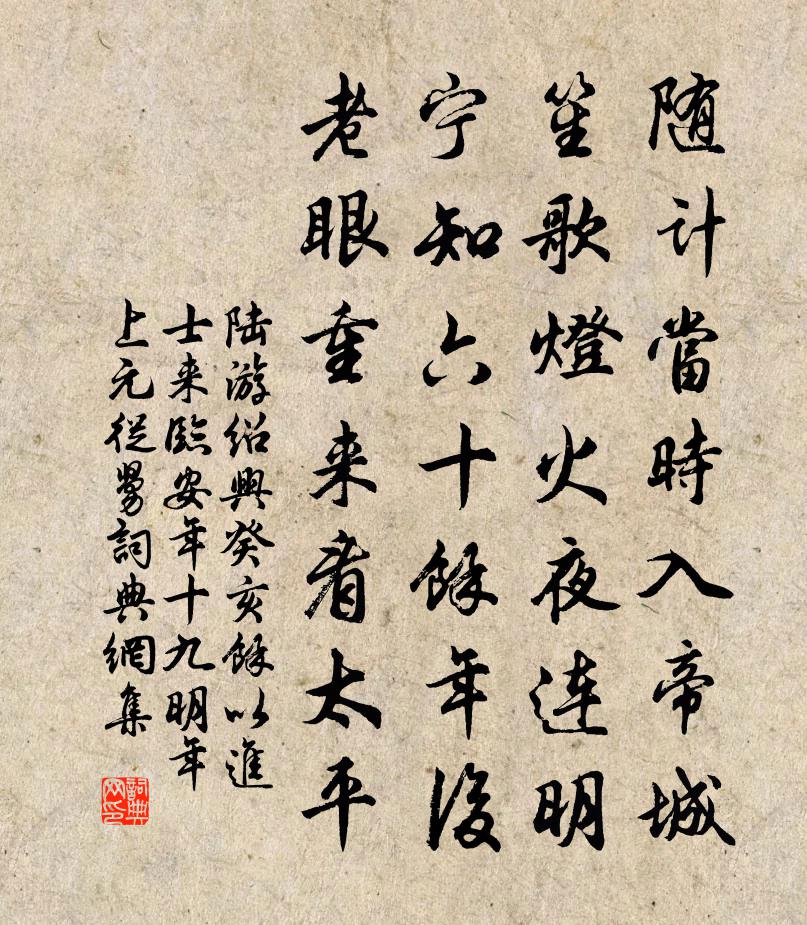 随计當時入帝城
笙歌燈火夜连明
宁知六十餘年後
老眼重来看太平
陆游绍興癸亥餘以進
士来臨安年十九明年
上元從舅詞典網集
詞典网印